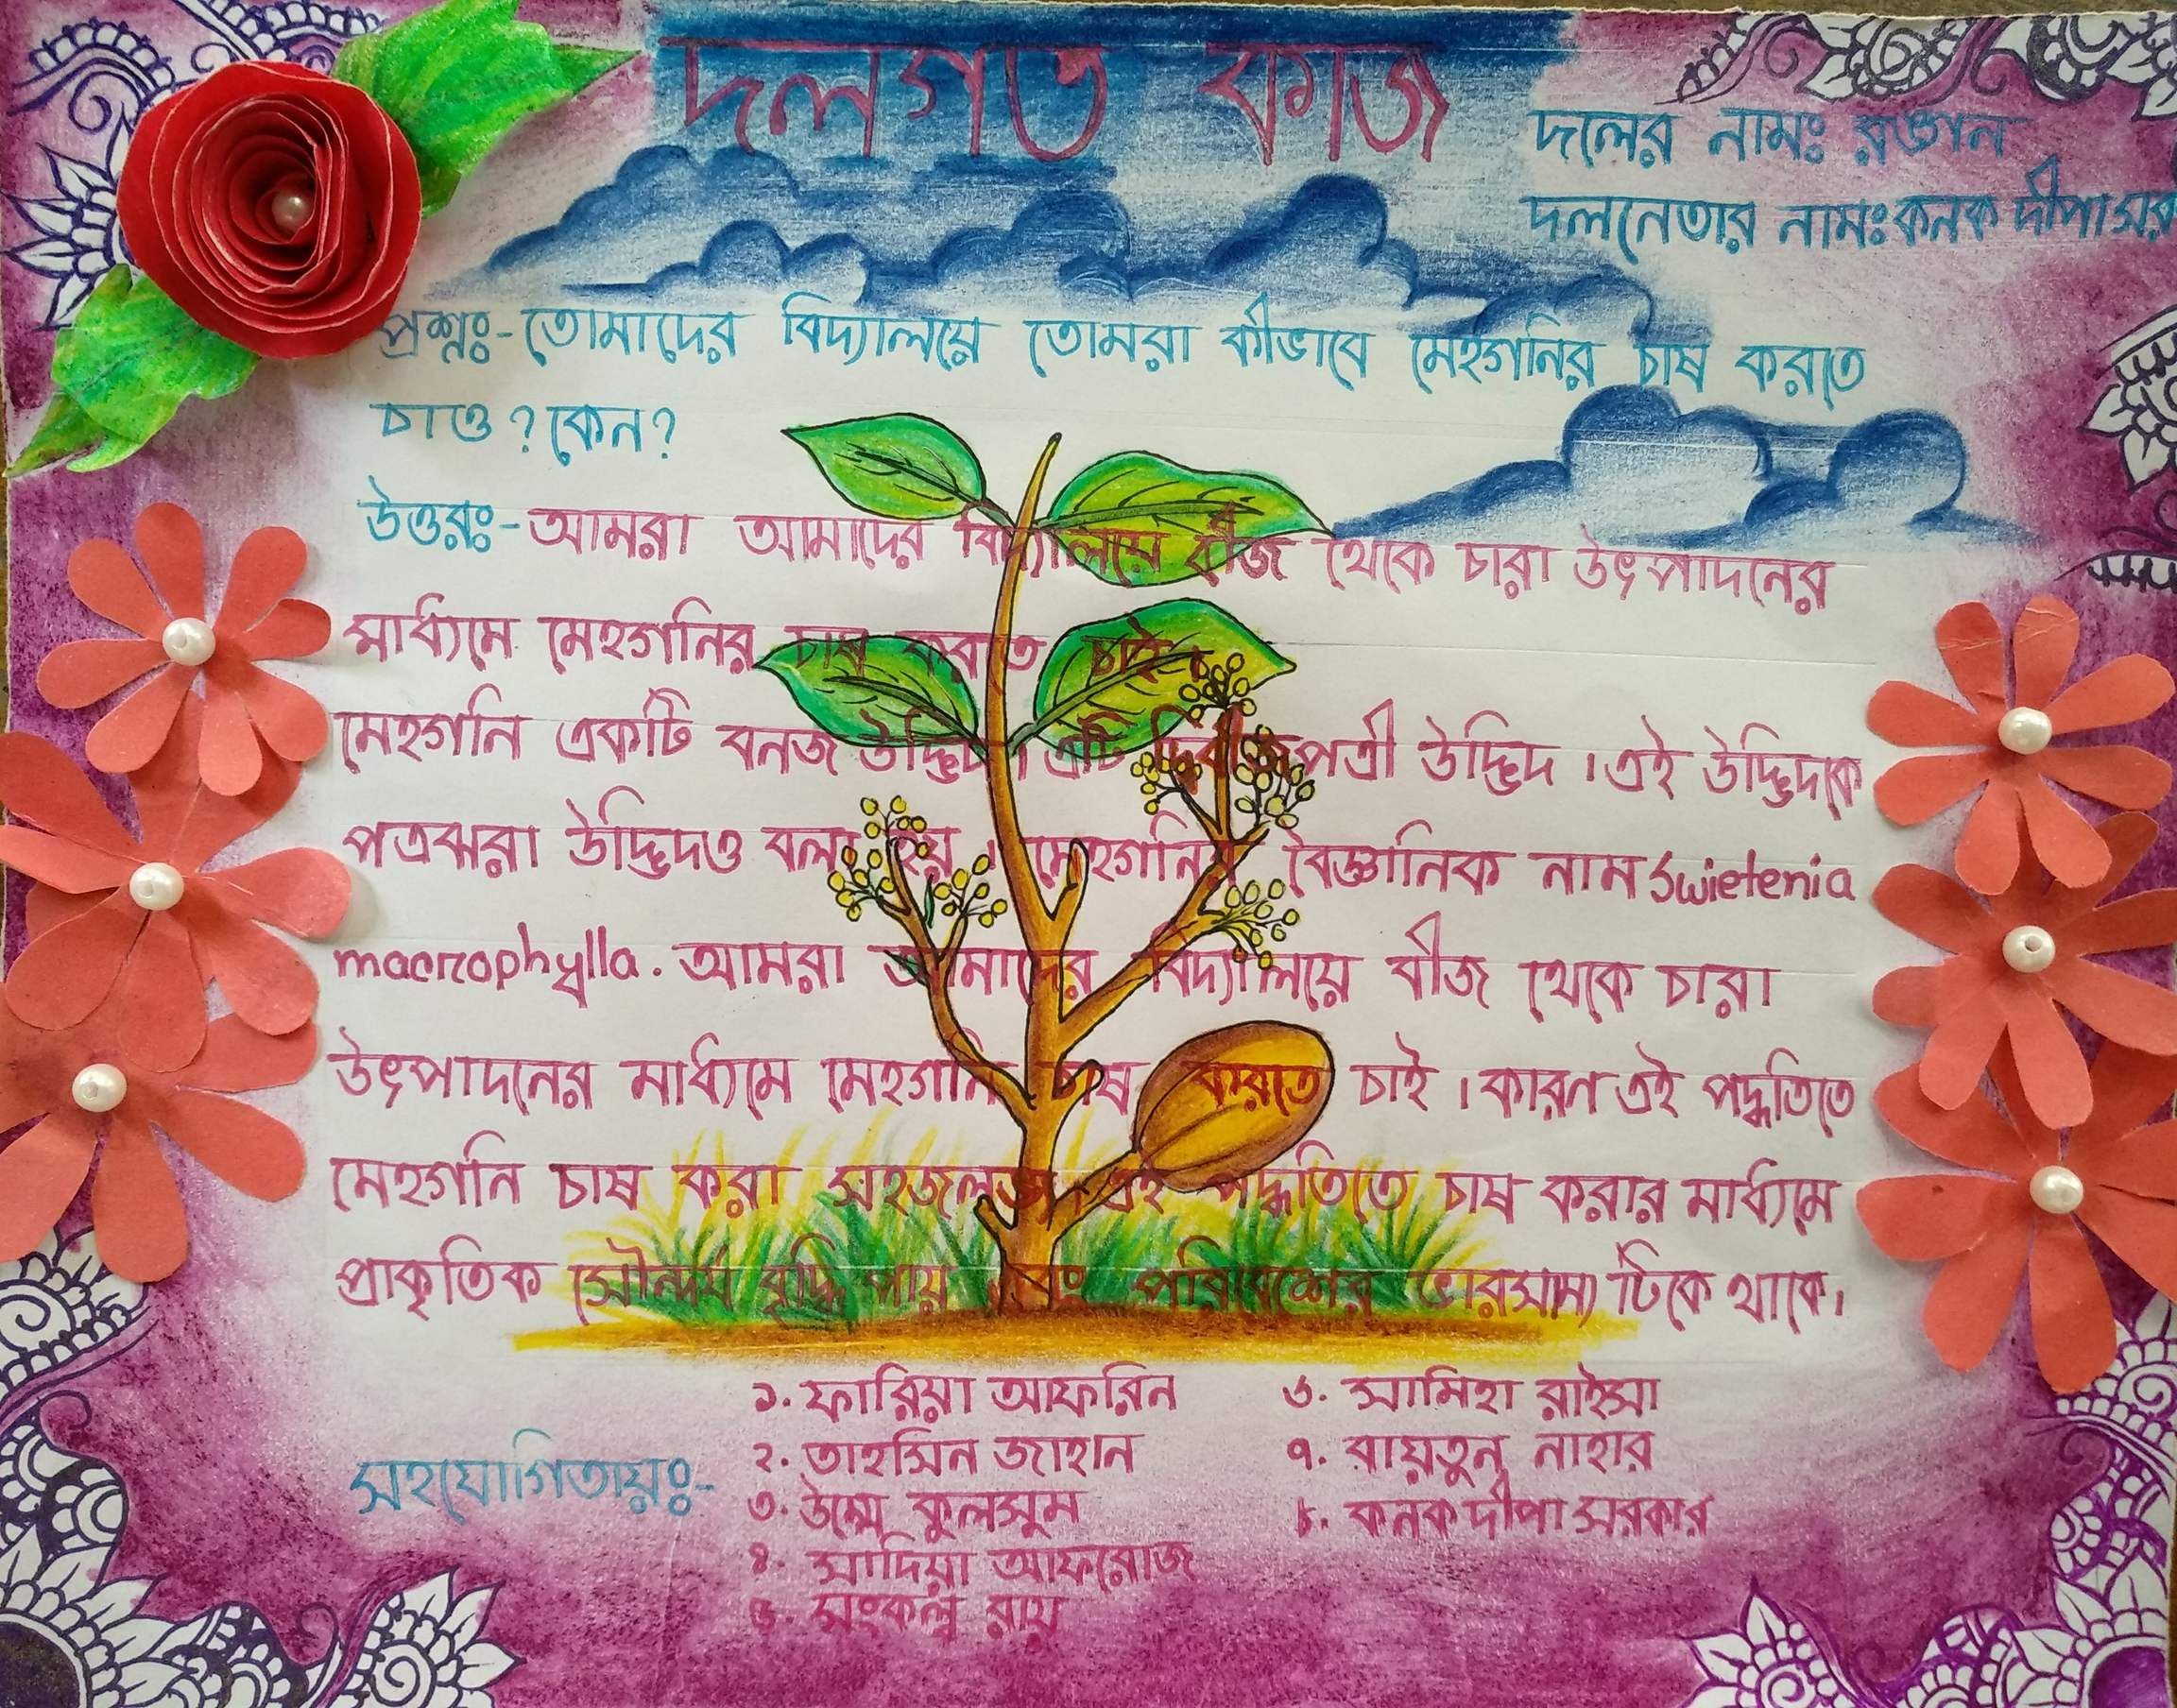 দলগত কাজ
দলের নামঃ রঙ্গন
দলনেতার নামঃ কনক দীপা সর
প্রশ্নঃ- তোমাদের বিদ্যালয়ে তোমরা কীভাবে মেহগনির চাষ করতে
চাও ? কেন ?
উত্তরঃ- আমরা আমাদের বিদ্যালয়ে বীজ থেকে চারা উৎপাদনের
মাধ্যমে মেহগনির চাষ করতে চাই।
মেহগনি একটি বনজ উদ্ভিদ। এটি দ্বিবীজপত্রী উদ্ভিদ । এই উদ্ভিদকে
পত্রঝরা উদ্ভিদও বলা হয় । মেহগনির বৈজ্ঞানিক নাম Swietenia
macrophylla. আমরা আমাদের বিদ্যালয়ে বীজ থেকে চারা
উৎপাদনের মাধ্যমে মেহগনি চাষ করতে চাই । কারণ এই পদ্ধতিতে
মেহগনি চাষ করা সহজলভ্য। এই পদ্ধতিতে চাষ করার মাধ্যমে
প্রাকৃতিক সৌন্দর্য বৃদ্ধি পায় এবং পরিবেশের ভারসাম্য টিকে থাকে।
সহযোগিতায়ঃ-
১. ফারিয়া আফরিন
২. তাহসিন জাহান
৩. উম্মে কুলসুম
৪. সাদিয়া আফরোজ
৫. সংকল্প রায়
৬. সামিহা রাইসা
৭. রায়তুন নাহার
৮. কনক দীপা সরকার